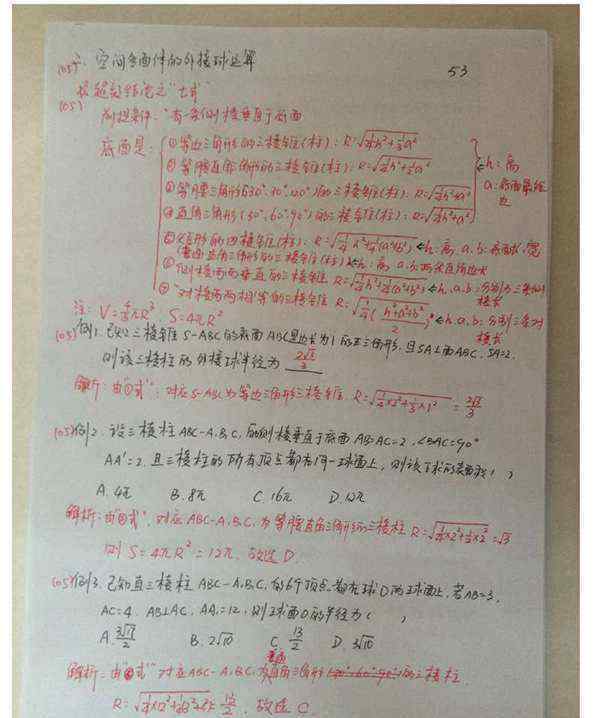 (05)二、空间多面体的外接球运算
53
(05)
前提条件：“有一条侧棱垂直于底面
底面是：
①等边三角形的三棱锥(柱)：R=√(1/4h²+1/3a²)
②等腰直角三角形的三棱锥(柱)：R=√(1/4h²+1/2a²)
③等腰三角形(30°,30°,120°)的三棱锥(柱)：R=√(1/4h²+a²)
④直角三角形(30°,60°,90°)的三棱锥(柱)：R=√(1/4h²+a²)
h：高
a：底面最短边
⑤矩形的四棱锥(柱)：R=√(1/4h²+1/4(a²+b²)) h：高，a、b：底面长、宽
(底面直角三角形的三棱锥(柱)) h：高 a、b：两条直角边长
⑥侧棱两两垂直的三棱锥 R=√(1/4h²+1/4(a²+b²)) h、a、b：分别为三条侧棱长
⑦“对棱两两相等的三棱锥 R=√(1/4(h²+a²+b²)/2) h、a、b：分别三条对棱长
注：V=4/3πR³ S=4πR²
(05)例1. 已知三棱锥S-ABC的底面ABC是边长为1的正三角形，且SA⊥面ABC，SA=2，
则该三棱柱的外接球半径为 2√3/3
解析：由“①式”，对应S-ABC为等边三角形三棱锥，R=√(1/4×2²+1/3×1²)=2√3/3
(05)例2. 设三棱柱ABC-A₁B₁C₁的侧棱垂直于底面 AB=AC=2，∠BAC=90°
AA'=2，且三棱柱的所有顶点都在同一球面上，则该球的表面积( )
A. 4π B. 8π C. 16π D. 12π
解析：由“②式”，对应ABC-A₁B₁C₁为等腰直角三角形的三棱柱 R=√(1/4×2²+1/2×2²)=√3
则 S=4πR²=12π，故选D.
(05)例3. 已知直三棱柱ABC-A₁B₁C₁的6个顶点都在球O的球面上，若AB=3，
AC=4，AB⊥AC，AA₁=12，则球面O的半径为( )
A. 3√17/2 B. 2√10 C. 13/2 D. 3√10
解析：由“式”对应ABC-A₁B₁C₁为直角三角形的三棱柱
13/2，故选C